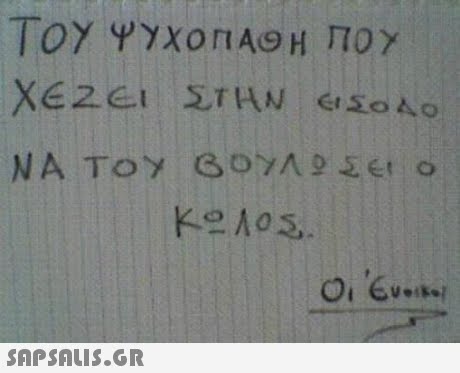 ΤΟΥ ΨΥΧΟΠΑΘΗ ΠΟΥ
ΧΕΖΕΙ ΣΤΗΝ ΕΙΣΟΔΟ
ΝΑ ΤΟΥ ΒΟΥΛΩΣΕΙ Ο
ΚΩΛΟΣ.
Οι Ένοικοι
SAPSALIS.GR